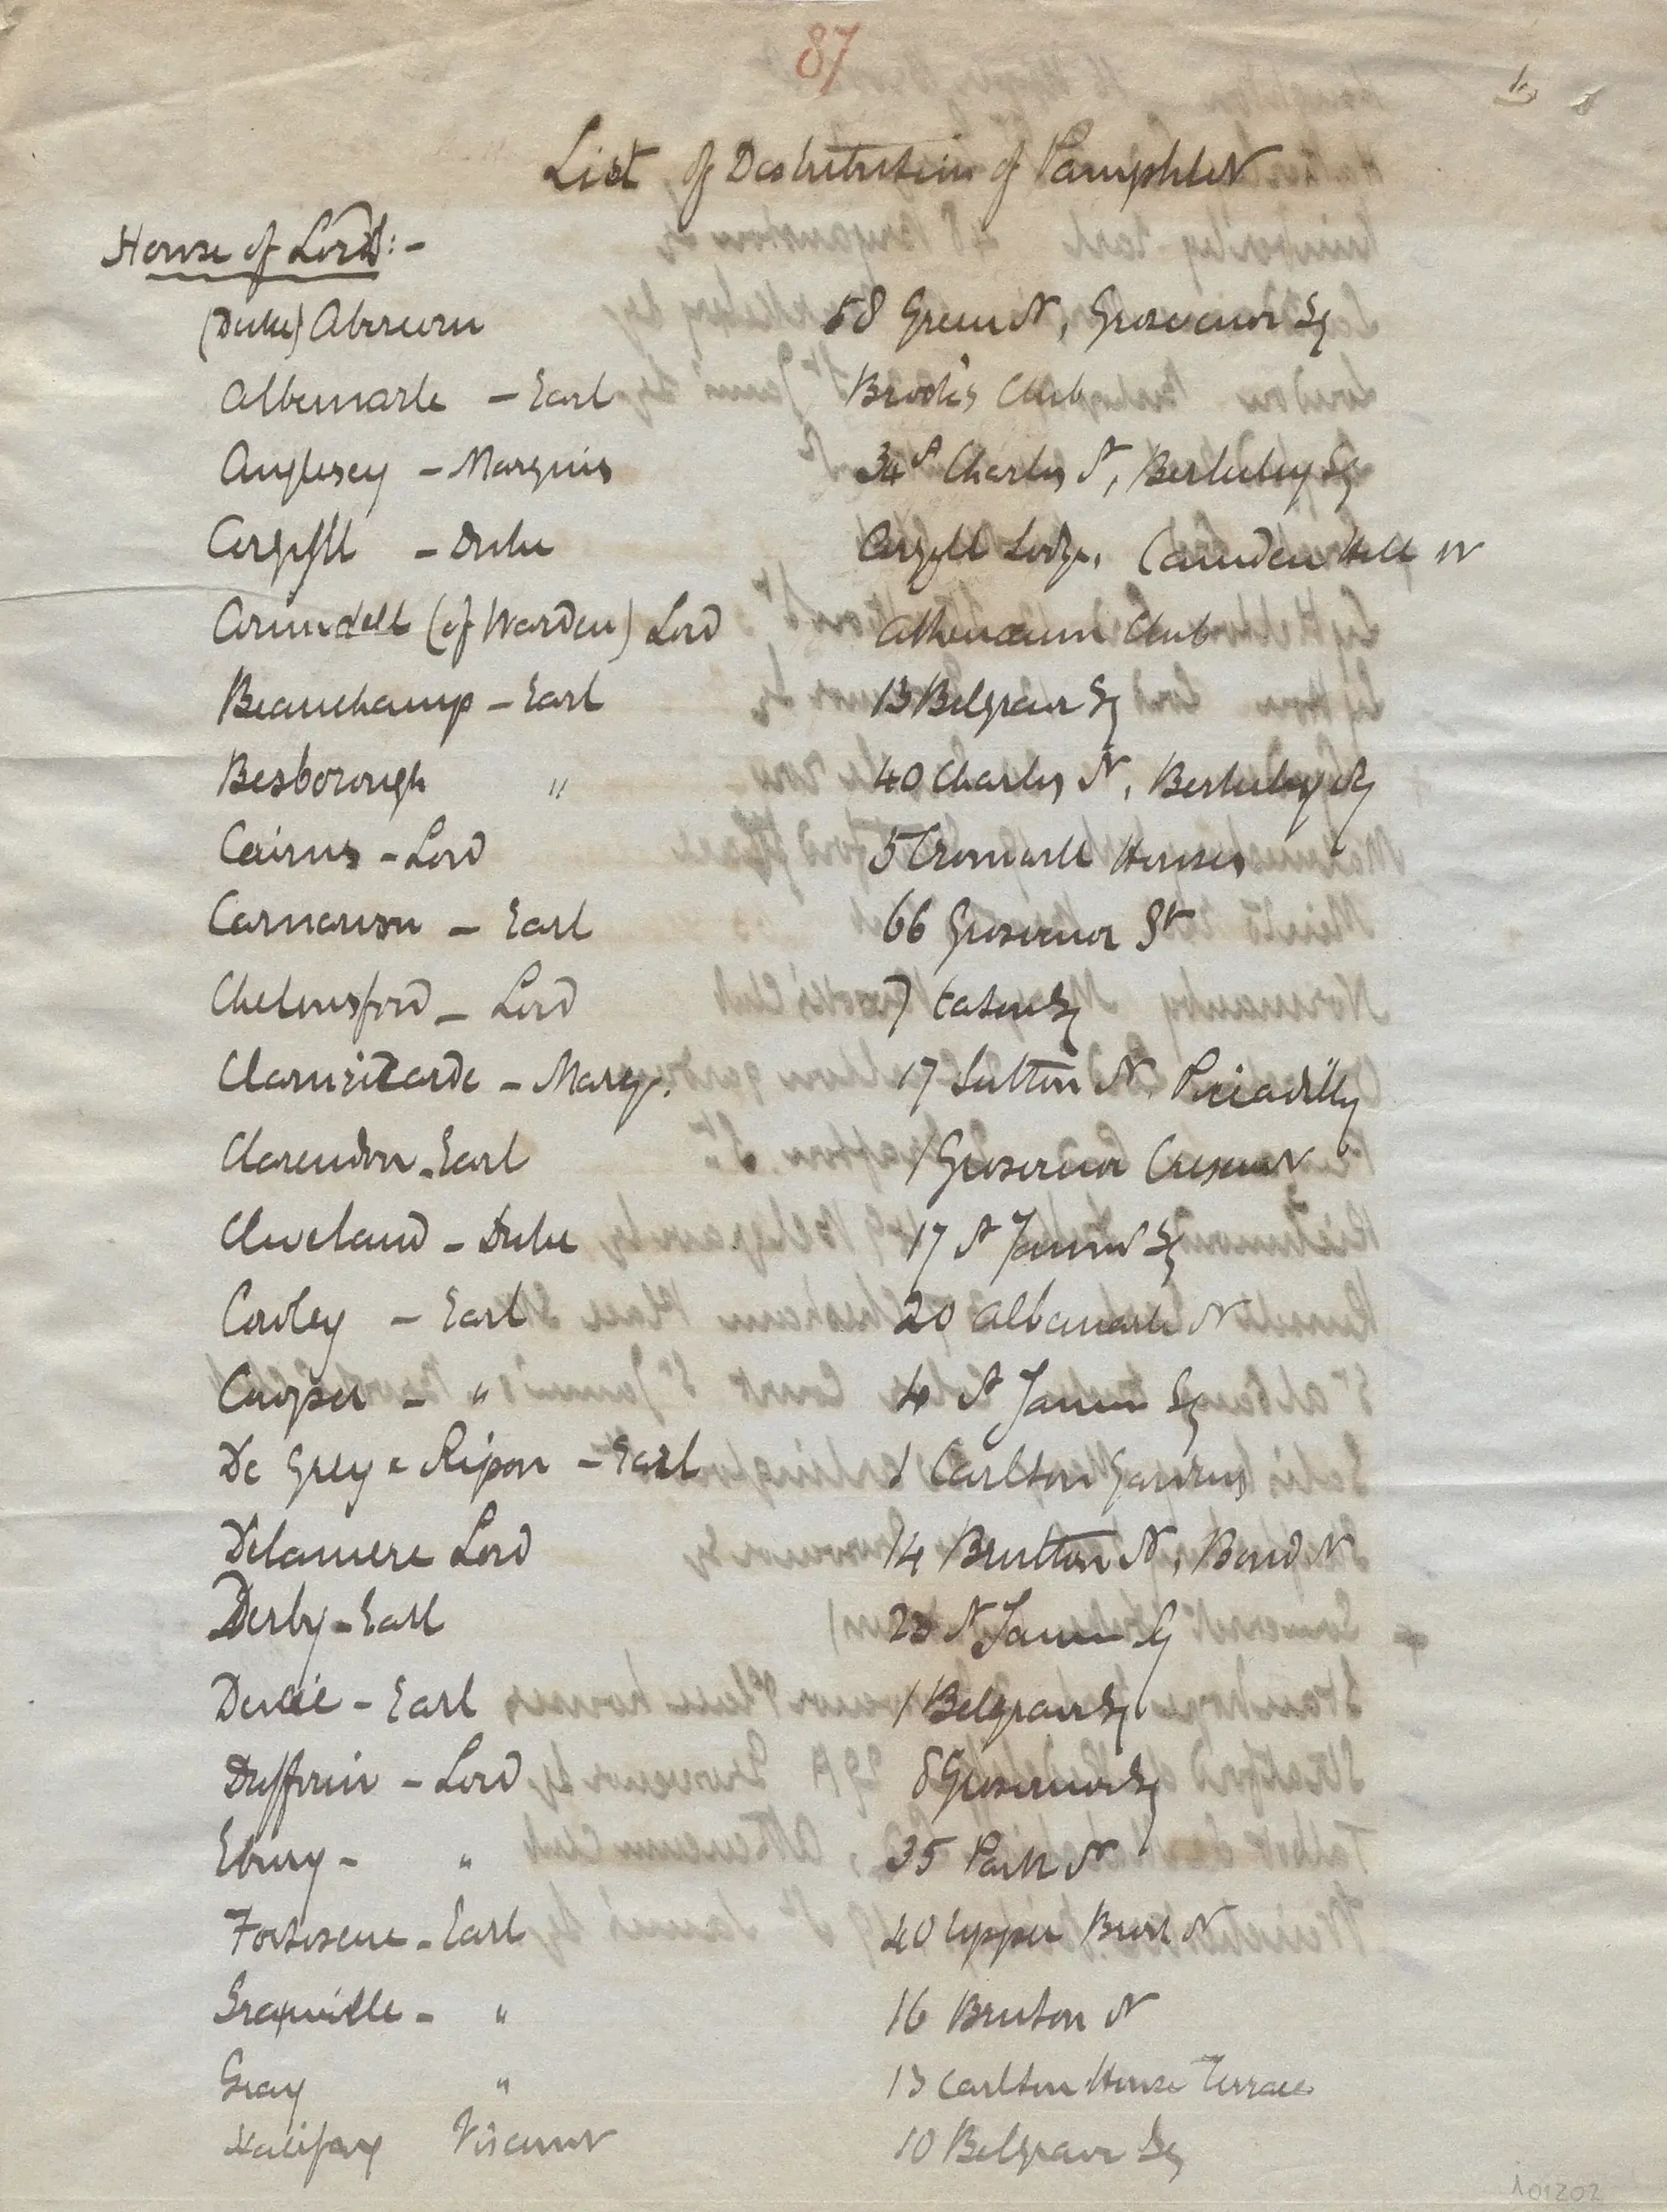 87
List of Distribution of Pamphlet
House of Lords:-
(Duke) Abercorn 58 Green St, Grosvenor Sq
Albemarle - Earl Brook's Club
Anglesey - Marquis 34 Charles St, Berkeley Sq
Argyll - Duke Argyll Lodge, Camden Hill W
Arundell (of Warden) Lord Athenaeum Club
Beauchamp - Earl 13 Belgrave Sq
Besborough " 40 Charles St, Berkeley Sq
Cairns - Lord 5 Cromwell Houses
Carnarvon - Earl 66 Grosvenor St
Chelmsford - Lord 7 Eaton Sq
Clanricarde - Marq. 17 St Piccadilly
Clarendon - Earl 1 Grosvenor Crescent
Cleveland - Duke 17 St James' Sq
Cowley - Earl 20 Albemarle St
Cowper - " 4 St James Sq
De Grey & Ripon - Earl 1 Carlton Gardens
Delamere Lord 14 Brutton St, Bond St
Derby - Earl 23 St James Sq
Ducie - Earl 1 Belgrave Sq
Dufferin - Lord 8 Grosvenor Sq
Ebury - " 35 Park St
Fortescue - Earl 40 Upper Brook St
Granville - " 16 Bruton St
Gray " 13 Carlton House Terrace
Halifax Viscount 10 Belgrave Sq
101202